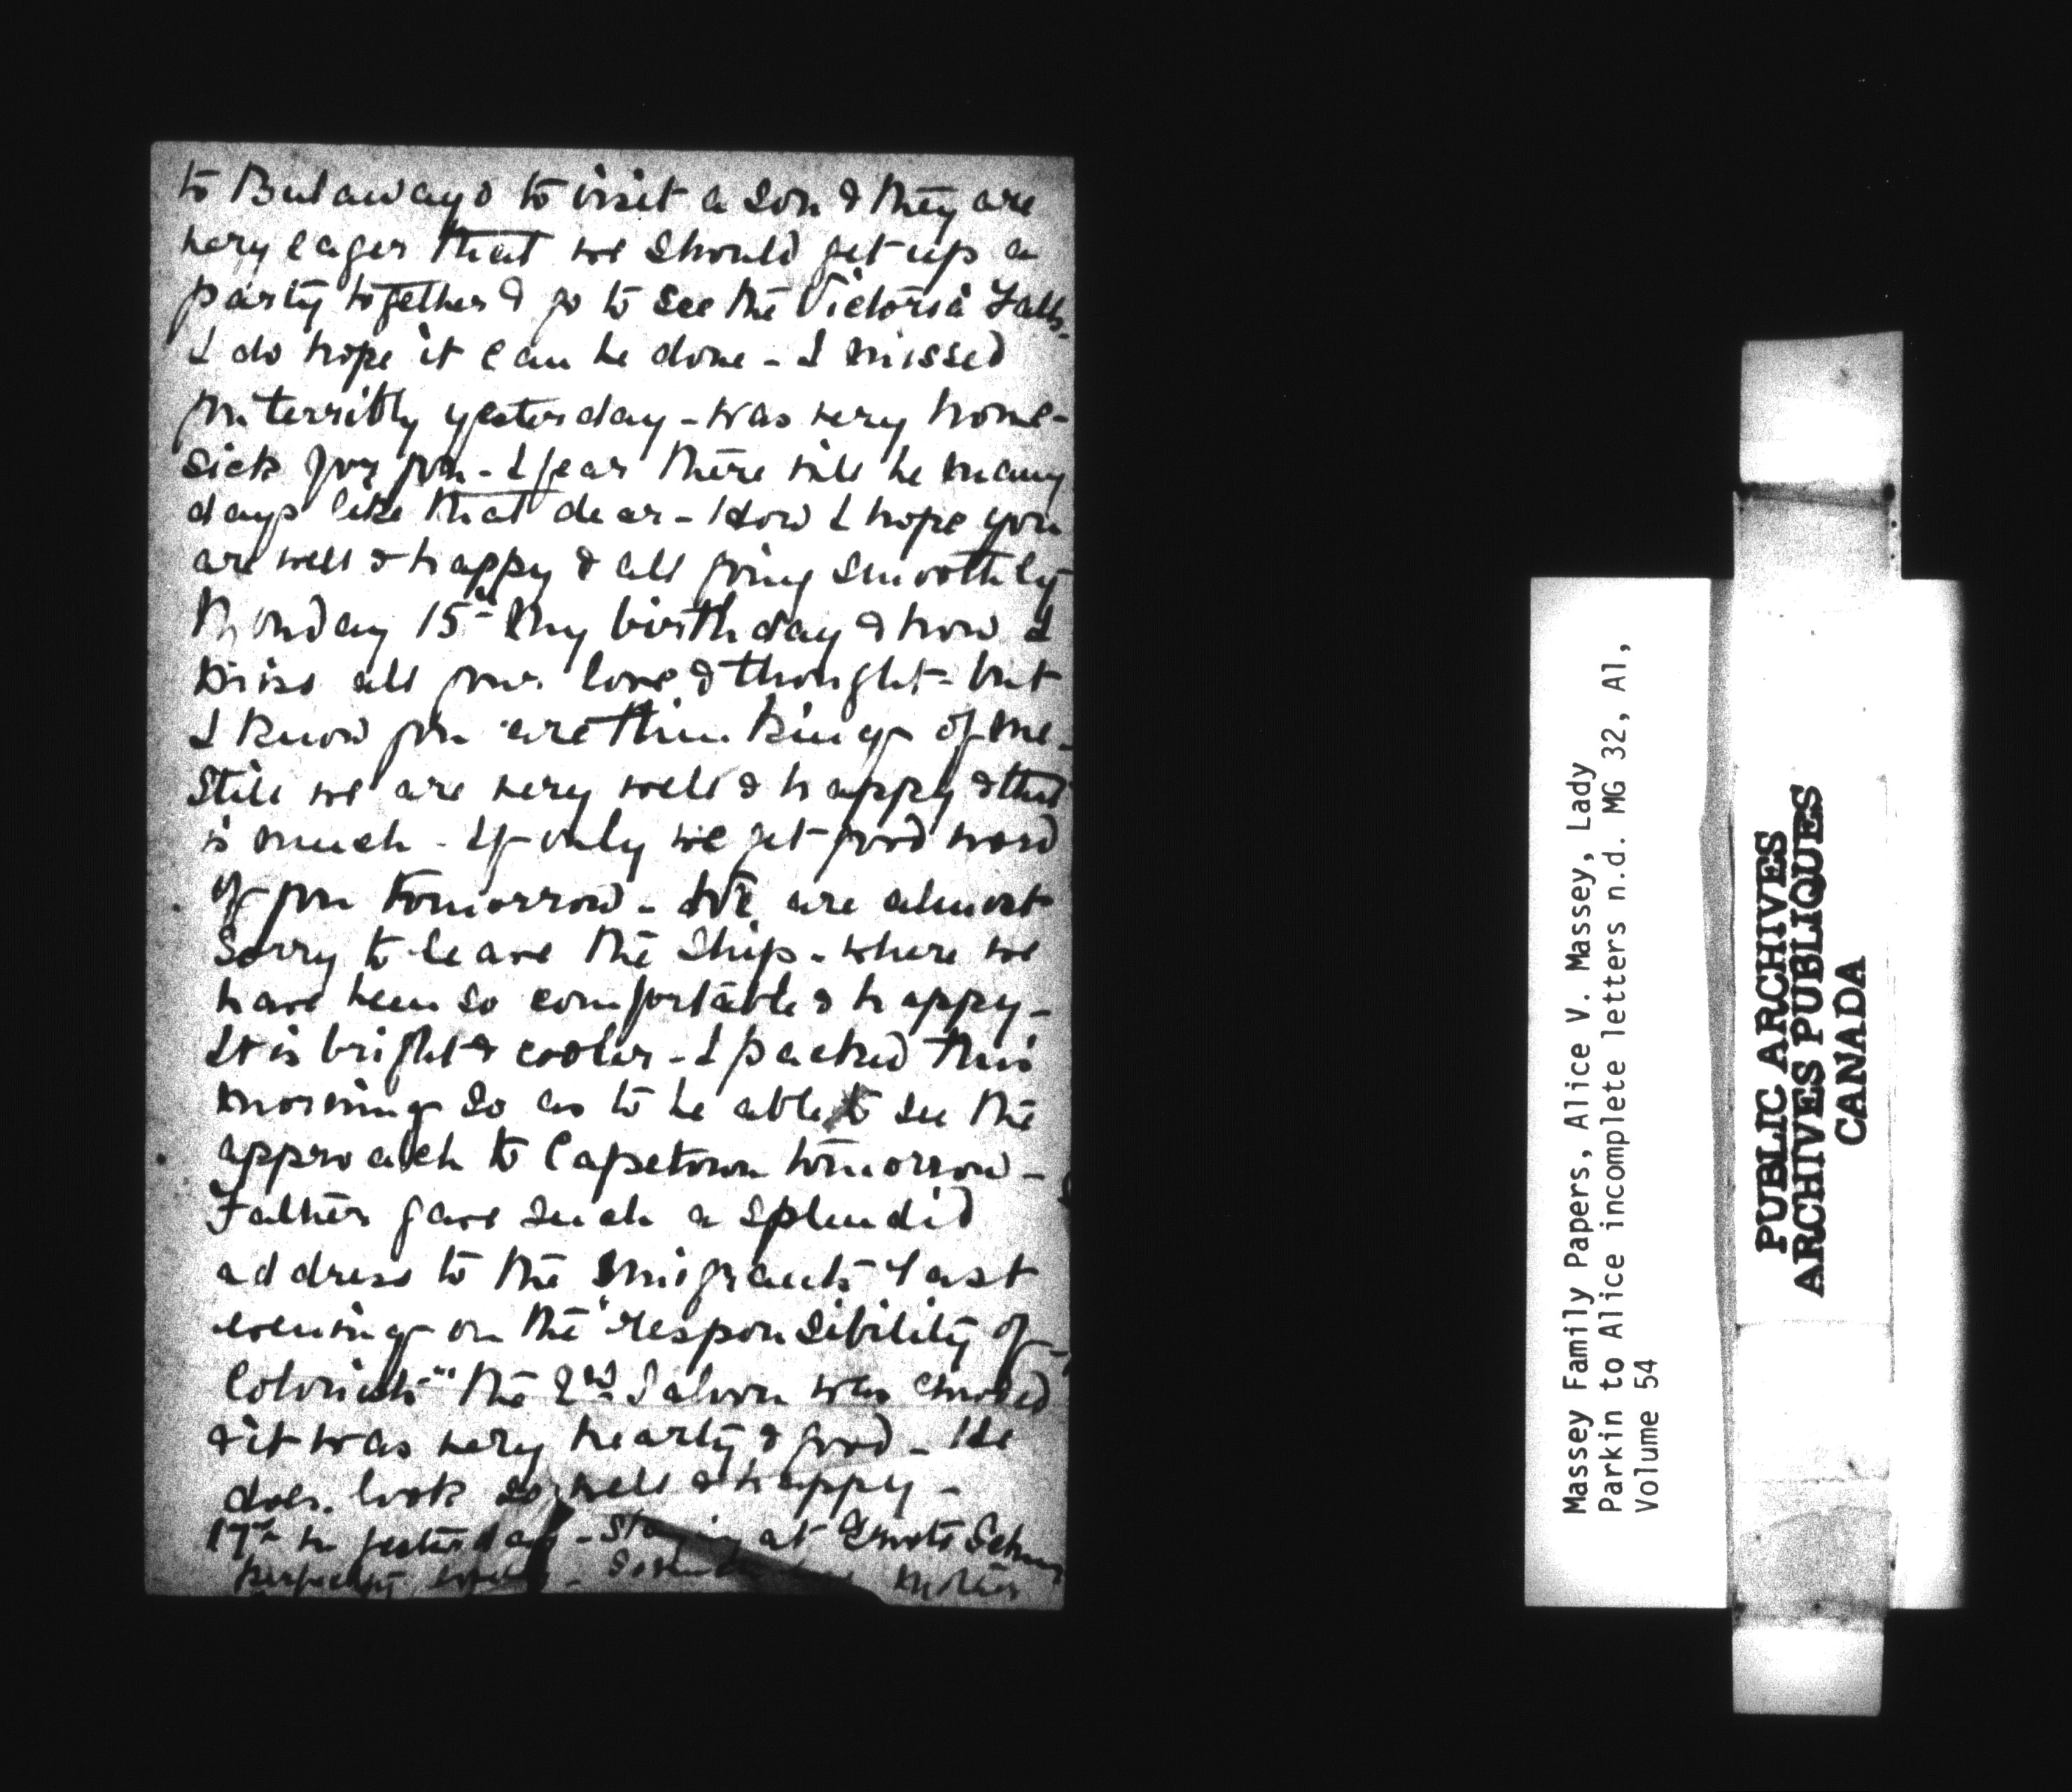 to Bulawayo to visit a son & they are
very eager that we should get up a
party together & go to see the Victoria Falls.
I do hope it can be done - I missed
you terribly yesterday - was very home-
sick for you - I fear there will be many
days like that dear - How I hope you
are well & happy & all going smoothly
Monday 15th My birthday & how I
miss all your love & thought - but
I know you are thinking of me -
Still we are very well & happy & that
is much - If only we get good word
of you tomorrow - We are almost
sorry to leave the ship - where we
have been so comfortable & happy -
It is bright & cooler - I packed this
morning so as to be able to see the
approach to Capetown tomorrow -
Father gave such a splendid
address to the Emigrants last
evening on the "responsibility of
Colonists" the 2nd Saloon was crowded
& it was very hearty & good - He
does look so well & happy -
17th in yesterday - Staying at
Mother
Massey Family Papers, Alice V. Massey, Lady
Parkin to Alice incomplete letters n.d. MG 32, A1,
Volume 54
PUBLIC ARCHIVES
ARCHIVES PUBLIQUES
CANADA